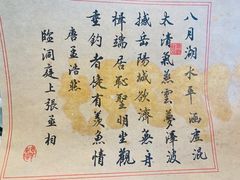 八月湖水平涵虛混
太清氣蒸雲夢澤波
撼岳陽城欲濟無舟
楫端居恥聖明坐觀
垂釣者徒有羨魚情
唐孟浩然
臨洞庭上張丞相